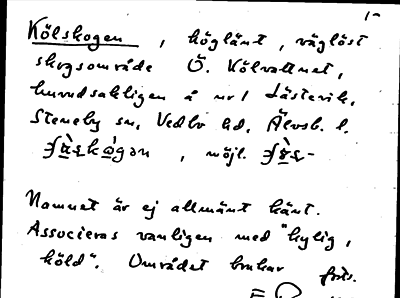 1-
Kölskogen, höglänt, väglöst
skogsområde Ö. Kölvattnet,
huvudsakligen å nr 1 Lästerik,
Steneby sn, Vedbo hd, Älvsb. l.
, möjl.
Namnet är ej allmänt känt.
Associeras vanligen med "kylig,
köld". Området brukar forts.